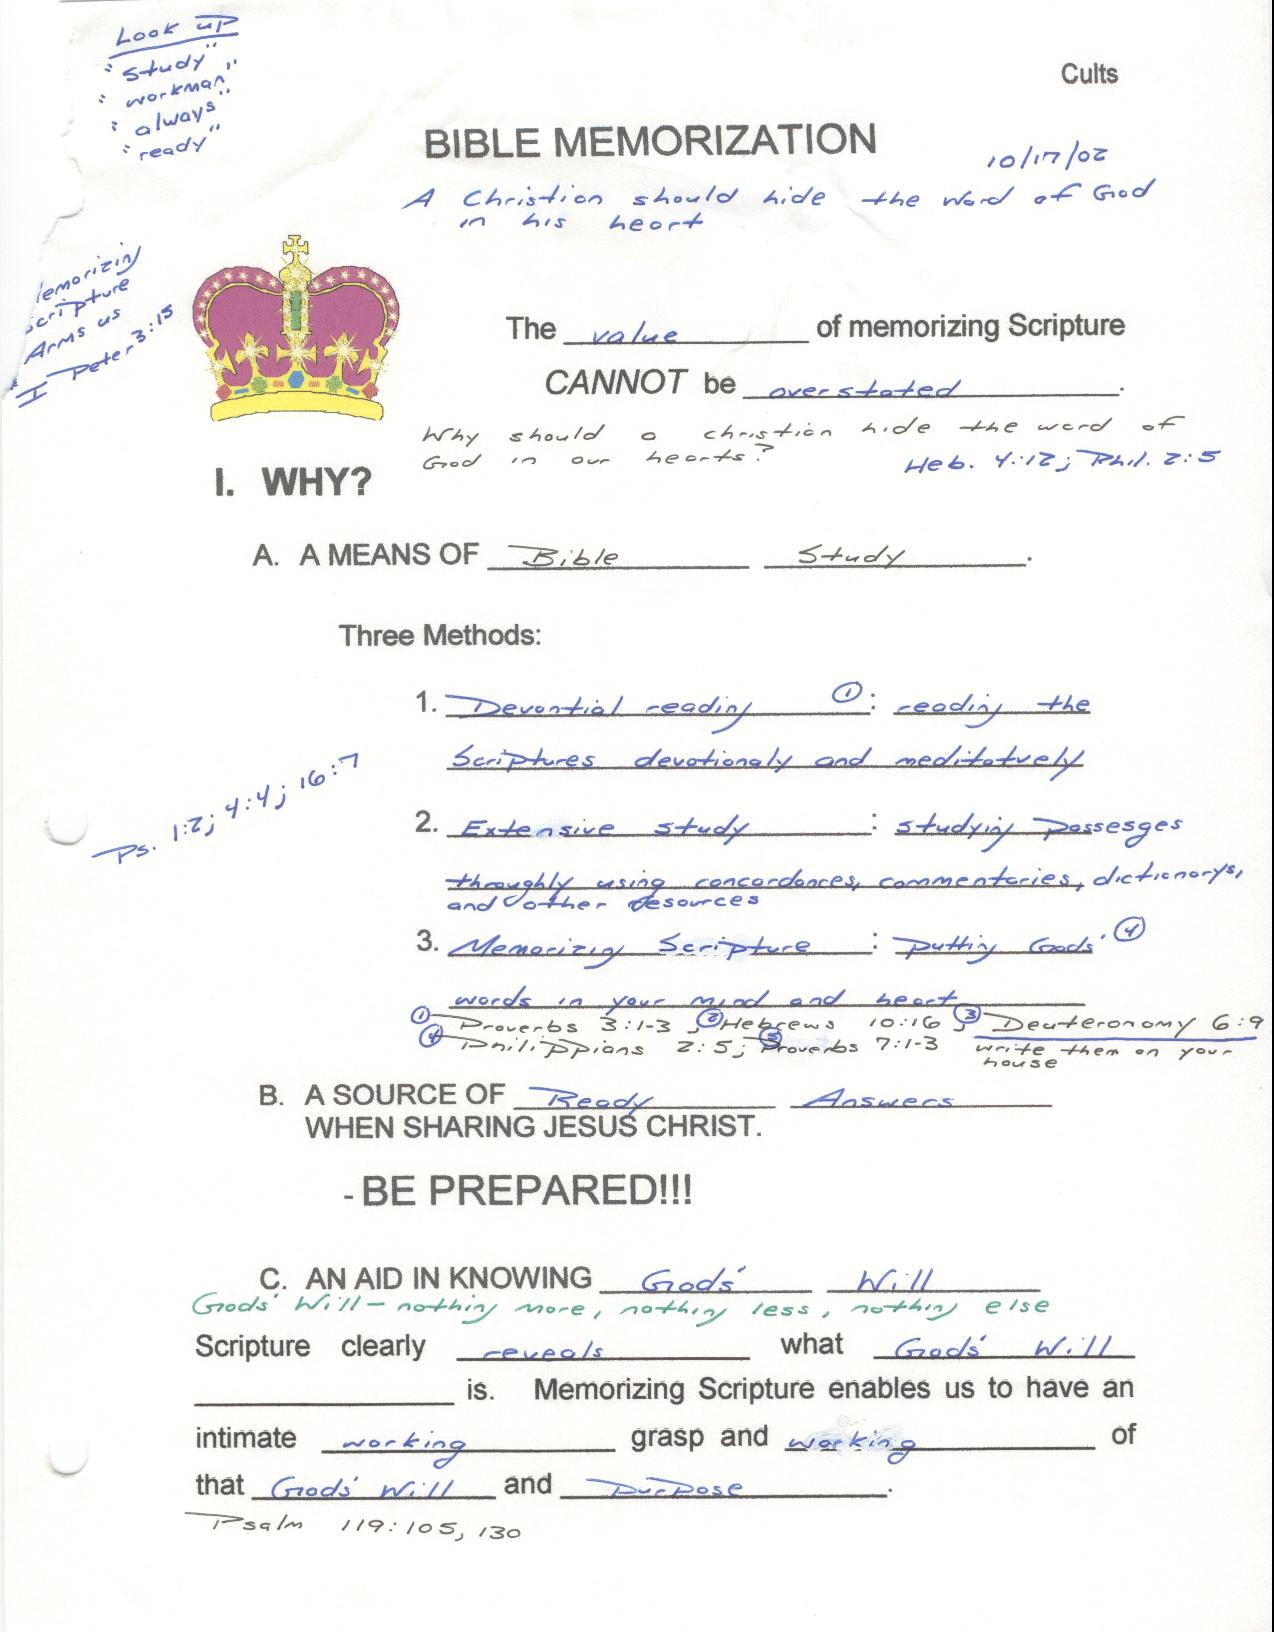 Look up
"study"
"workman"
"always"
"ready"
Cults
BIBLE MEMORIZATION
10/17/02
A Christion should hide the word of God
in his heart
emorizing
cripture
Arms us
I Peter 3:15
The value of memorizing Scripture
CANNOT be overstated.
Why should a christian hide the word of
God in our hearts?
Heb. 4:12; Phil. 2:5
I. WHY?
A. A MEANS OF Bible Study.
Three Methods:
1. Devontial reading ①: reading the
Scriptures devotionaly and meditatvely
Ps. 1:2; 4:4; 16:7
2. Extensive study: studying passesges
throughly using concordances, commentaries, dictionarys,
and other resources
3. Memorizing Scripture: putting Gods' ④
words in your mind and heart
① Proverbs 3:1-3; ② Hebrews 10:16; ③ Deuteronomy 6:9
④ Philippians 2:5; ⑤ Proverbs 7:1-3 write them on your
house
B. A SOURCE OF Ready Answers
WHEN SHARING JESUS CHRIST.
- BE PREPARED!!!
C. AN AID IN KNOWING Gods' Will
Gods' Will - nothing more, nothing less, nothing else
Scripture clearly reveals what Gods' Will
is. Memorizing Scripture enables us to have an
intimate working grasp and working of
that Gods' Will and purpose.
Psalm 119:105, 130